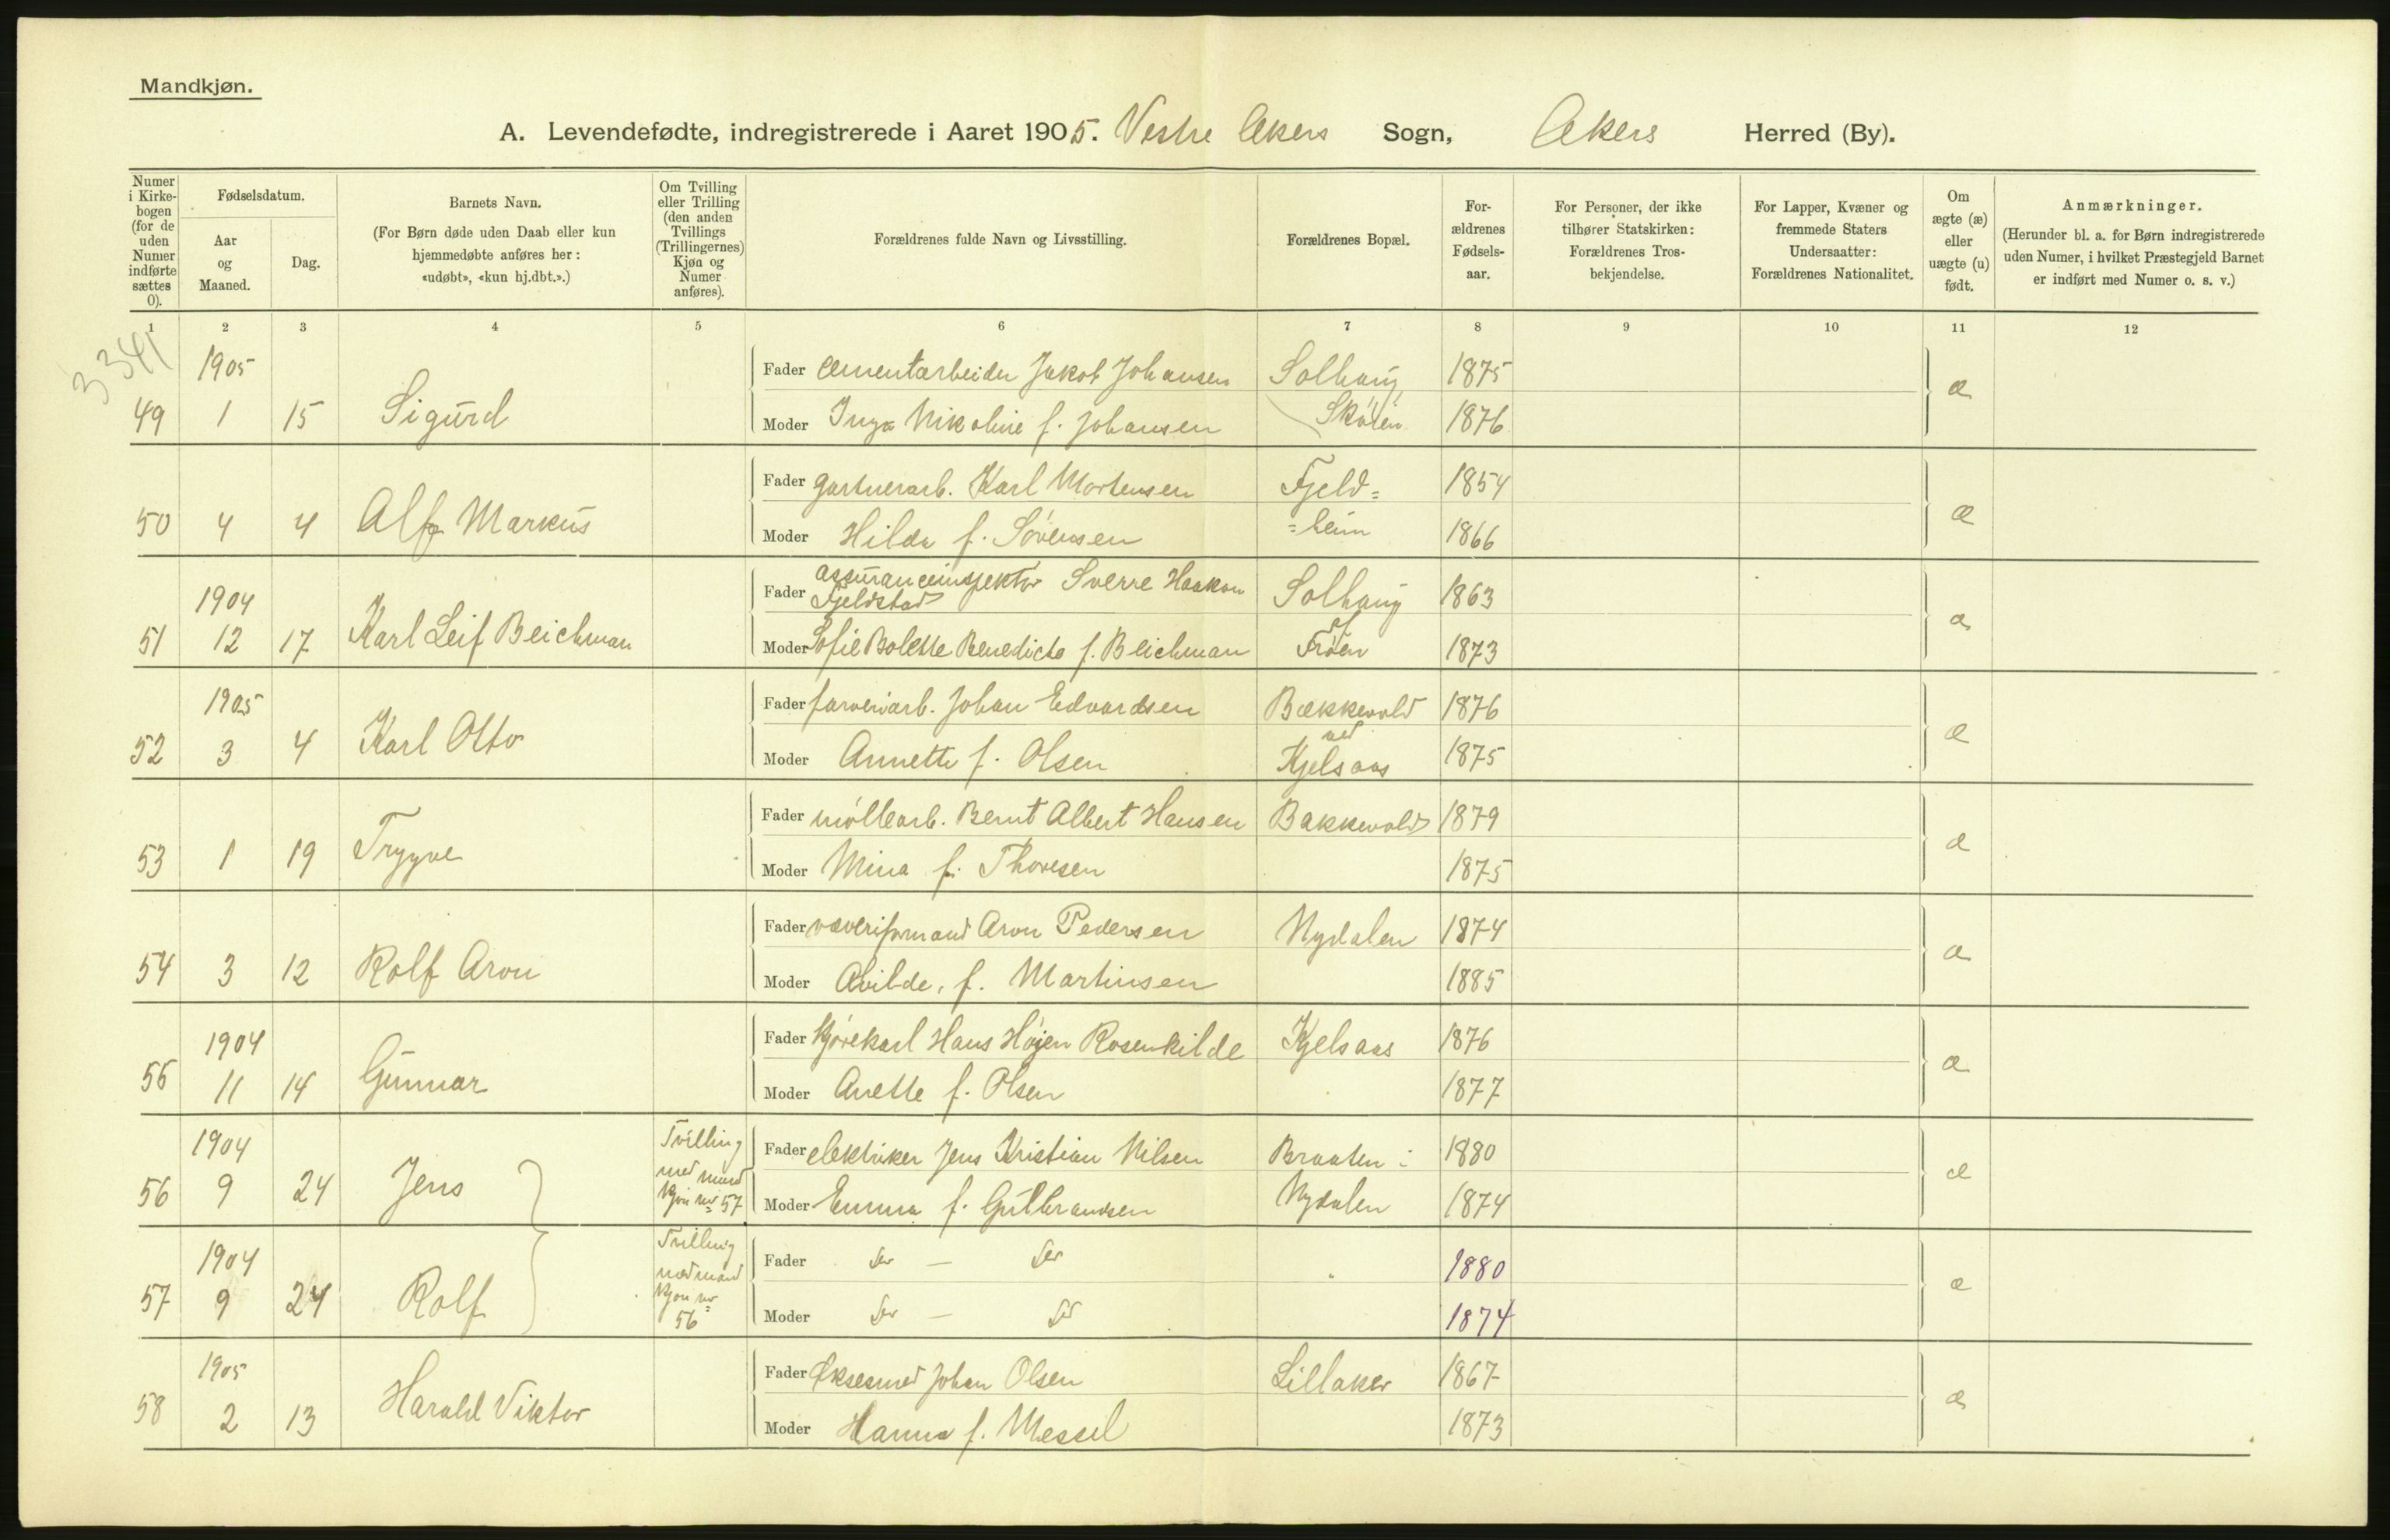 Mandkjøn.
A. Levendefødte, indregistrerede i Aaret 1905. Vestre Akers Sogn, Akers Herred (By).
Numer i Kirkebogen (for de uden Numer indførte sættes 0).
Fødselsdatum.
Aar og Maaned.
Dag.
Barnets Navn.
(For Børn døde uden Daab eller kun hjemmedøbte anføres her: «udøbt», «kun hj.dbt.».)
Om Tvilling eller Trilling (den anden Tvillings (Trillingernes) Kjøn og Numer anføres).
Forældrenes fulde Navn og Livsstilling.
Forældrenes Bopæl.
Forældrenes Fødselsaar.
For Personer, der ikke tilhører Statskirken: Forældrenes Trosbekjendelse.
For Lapper, Kvæner og fremmede Staters Undersaatter: Forældrenes Nationalitet.
Om ægte (æ) eller uægte (u) født.
Anmærkninger.
(Herunder bl. a. for Børn indregistrerede uden Numer, i hvilket Præstegjeld Barnet er indført med Numer o. s. v.)
1 2 3 4 5 6 7 8 9 10 11 12
3341
1905
Fader cementarbeider Jakob Johansen Solhaug 1875
49 1 15 Sigurd æ
Moder Inga Nikoline f. Johansen Skøien 1876
Fader gartnerarb. Karl Mortensen Fjeld= 1854
50 4 4 Alf Markus æ
Moder Hilda f. Sørensen =heim 1866
1904
Fader assuranceinspektør Sverre Haakon Fjeldstad Solhaug 1863
51 12 17 Karl Leif Beichman æ
Moder Sofie Bolette Benedicte f. Beichman pr Frøen 1873
1905
Fader farveriarb. Johan Edvardsen Bækkevold 1876
52 3 4 Karl Otto æ
Moder Annette f. Olsen ved Kjelsaas 1875
Fader møllearb. Bernt Albert Hansen Bakkevold 1879
53 1 19 Trygve æ
Moder Mina f. Thoresen 1875
Fader væveriformand Aron Pedersen Nydalen 1874
54 3 12 Rolf Aron æ
Moder Alvilde, f. Martinsen 1885
1904
Fader kjørekarl Hans Højen Rosenkilde Kjelsaas 1876
55 11 14 Gunnar æ
Moder Anette f. Olsen 1877
1904
Fader elektriker Jens Kristian Nilsen Braaten i 1880
56 9 24 Jens Tvilling med mand kjøn nr 57 æ
Moder Emma f. Gulbrandsen Nydalen 1874
1904
Fader do — do " 1880
57 9 24 Rolf Tvilling med mand kjøn nr 56 æ
Moder do — do 1874
1905
Fader Øksesmed Johan Olsen Lillaker 1867
58 2 13 Harald Viktor æ
Moder Hanna f. Messel 1873